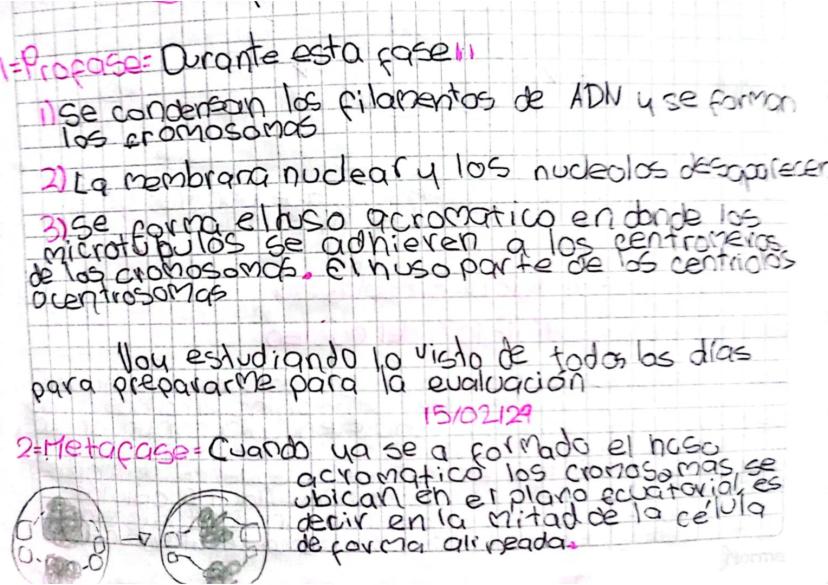 1=Profase= Durante esta fase
1) Se condensan los filamentos de ADN y se forman
los cromosomas
2) La membrana nuclear y los nucleolos desaparecen
3) Se forma el huso acromatico en donde los
microtubulos se adhieren a los centromeros
de los cromosomas. El huso parte de los centriolos
o centrosomas
Voy estudiando lo visto de todos los días
para prepararme para la evaluación
15/02/29
2=Metafase= Cuando ya se a formado el huso
acromatico los cromosomas se
ubican en el plano ecuatorial es
decir en la mitad de la célula
de forma alineada.
Norma